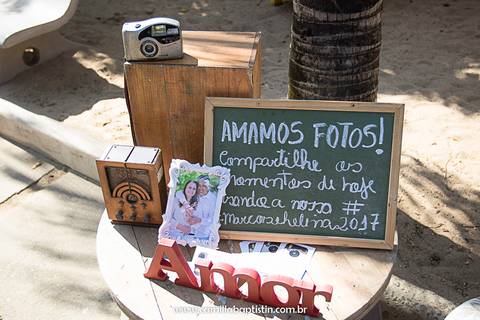 AMAMOS FOTOS!
Compartilhe os
momentos de hoje
usando a nossa #
Marcosehelina2017
Amor
www.camillabaptistin.com.br